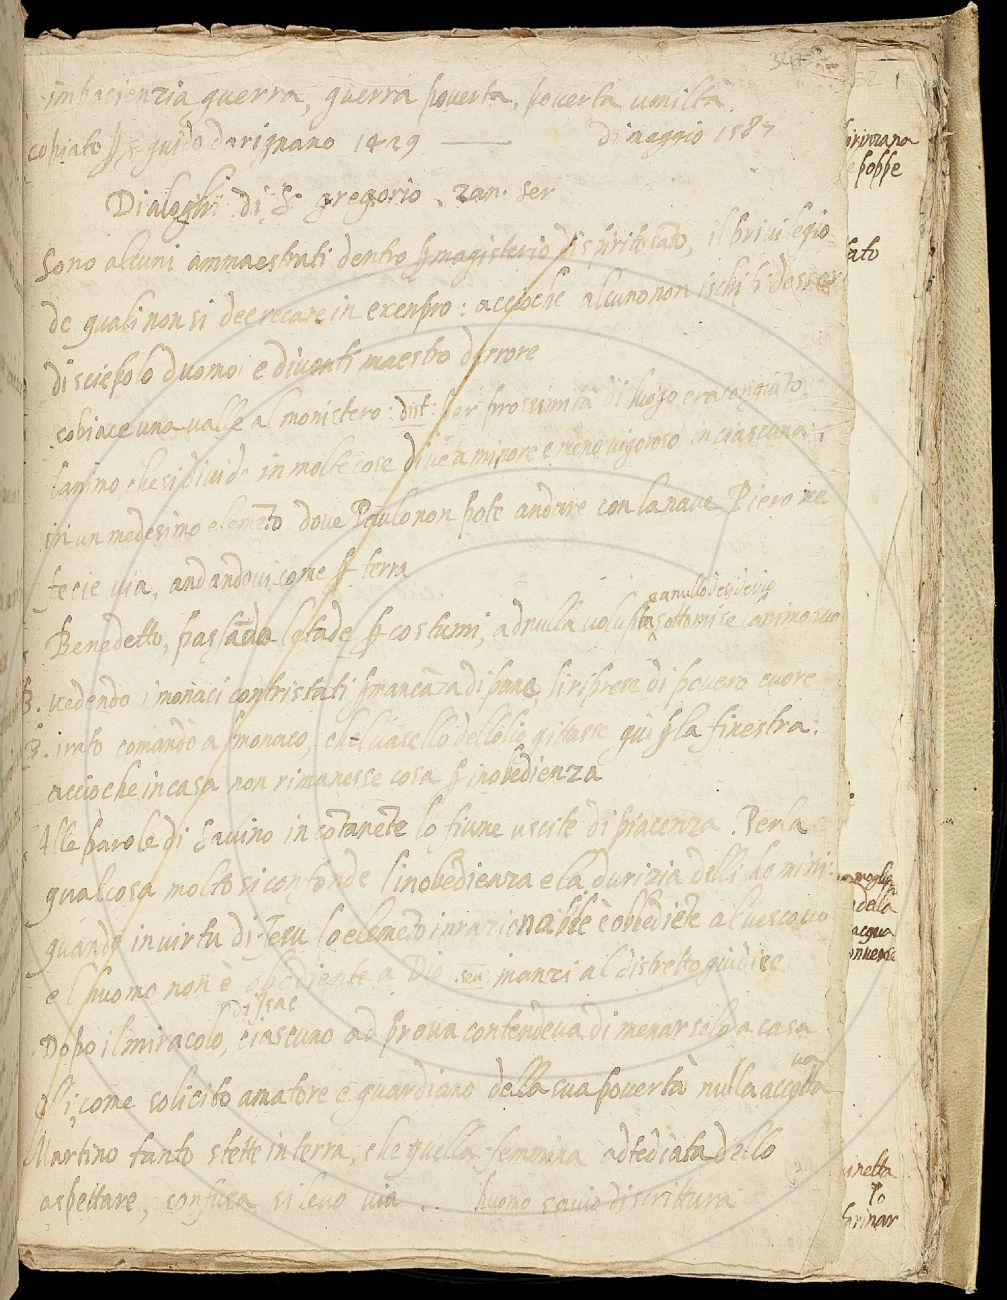 impacienzia guerra, guerra poverta, poverta umilta
copiato guido darignano 1429 di maggio 1587
Dialoghi di S. gregorio . zan. ser
Sono alcuni ammaestrati dentro magisterio di spirito sāto, il privilegio
de quali non si dee recare in exenpro: accioche alcuno non ischifi desser
disciepolo duomo e diventi maestro derrore
sobiace una valle al monistero. dist: per prossimita di luogo era congiūto
lanimo che si divide in molte cose divēta minore e meno vigoroso in ciascuna
in un medesimo elemēto dove Paulo non pote andare con la nave Piero ne
fecie via, andandovi come terra
a nullo desiderio
Benedetto, passādo letade costumi, ad nulla volu sottomise lanimo suo
3. vedendo i monaci contristati mancāza di pane, li riprese di povero cuore
3. irato comandò a monaco, che l vasello dellolio gittasse giù la finestra:
accio che in casa non rimanesse cosa inobedienza
Alle parole di Savino incōtanēte lo fiume uscite di piacenza. Per la
qual cosa molto si confonde linobedienza e la durizia delli homini:
quando in virtu di Jesu lo elemēto inrazionabile è obbediēte al vescovo
e l huomo non è obediente a Dio . inanzi al distretto giudice
di Isac
Dopo il miracolo, ciascuno ad prova contendeva di menarselo a casa
Ma
Elli, come solicito amatore e guardiano della sua povertà nulla accetta
Martino tanto stette in terra, che quella femmina adtediata dello
aspettare, confusa si levo via .. huomo savio di scrittura
poppe
tato
moglie
della
acqua